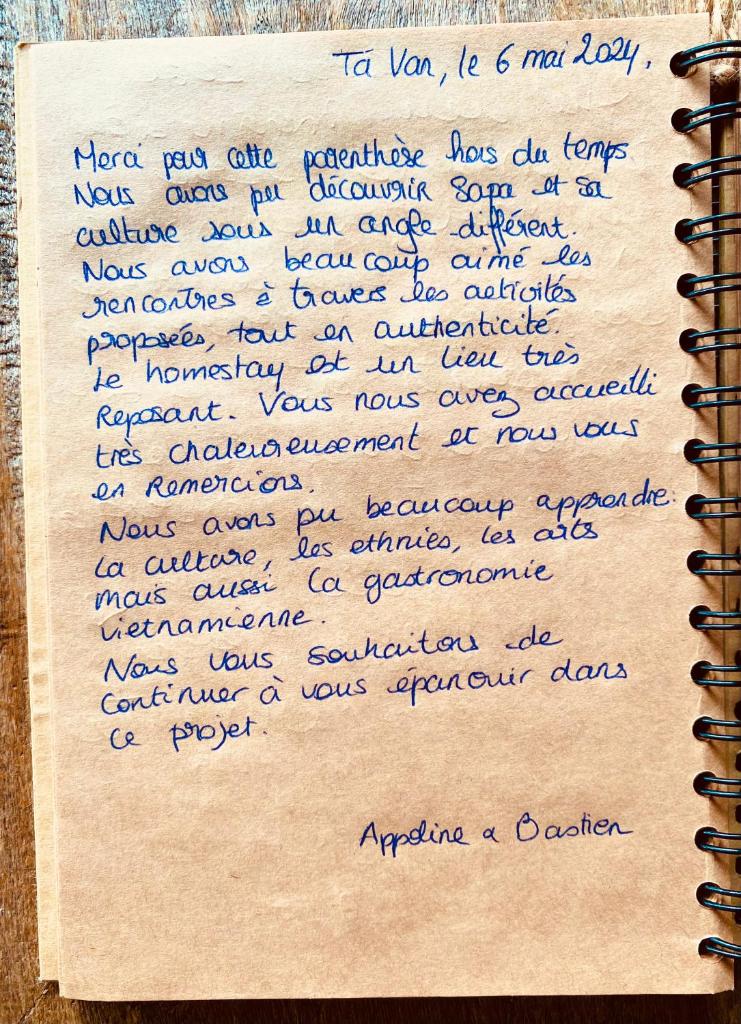 Tả Van, le 6 mai 2024.
Merci pour cette parenthèse hors du temps
Nous avons pu découvrir Sapa et sa
culture sous un angle différent.
Nous avons beaucoup aimé les
rencontres à travers les activités
proposées, tout en authenticité.
Le homestay est un lieu très
Reposant. Vous nous avez accueilli
très chaleureusement et nous vous
en Remercions.
Nous avons pu beaucoup apprendre :
la culture, les ethnies, les arts
mais aussi la gastronomie
vietnamienne.
Nous vous souhaitons de
continuer à vous épanouir dans
ce projet.
Appoline & Bastien